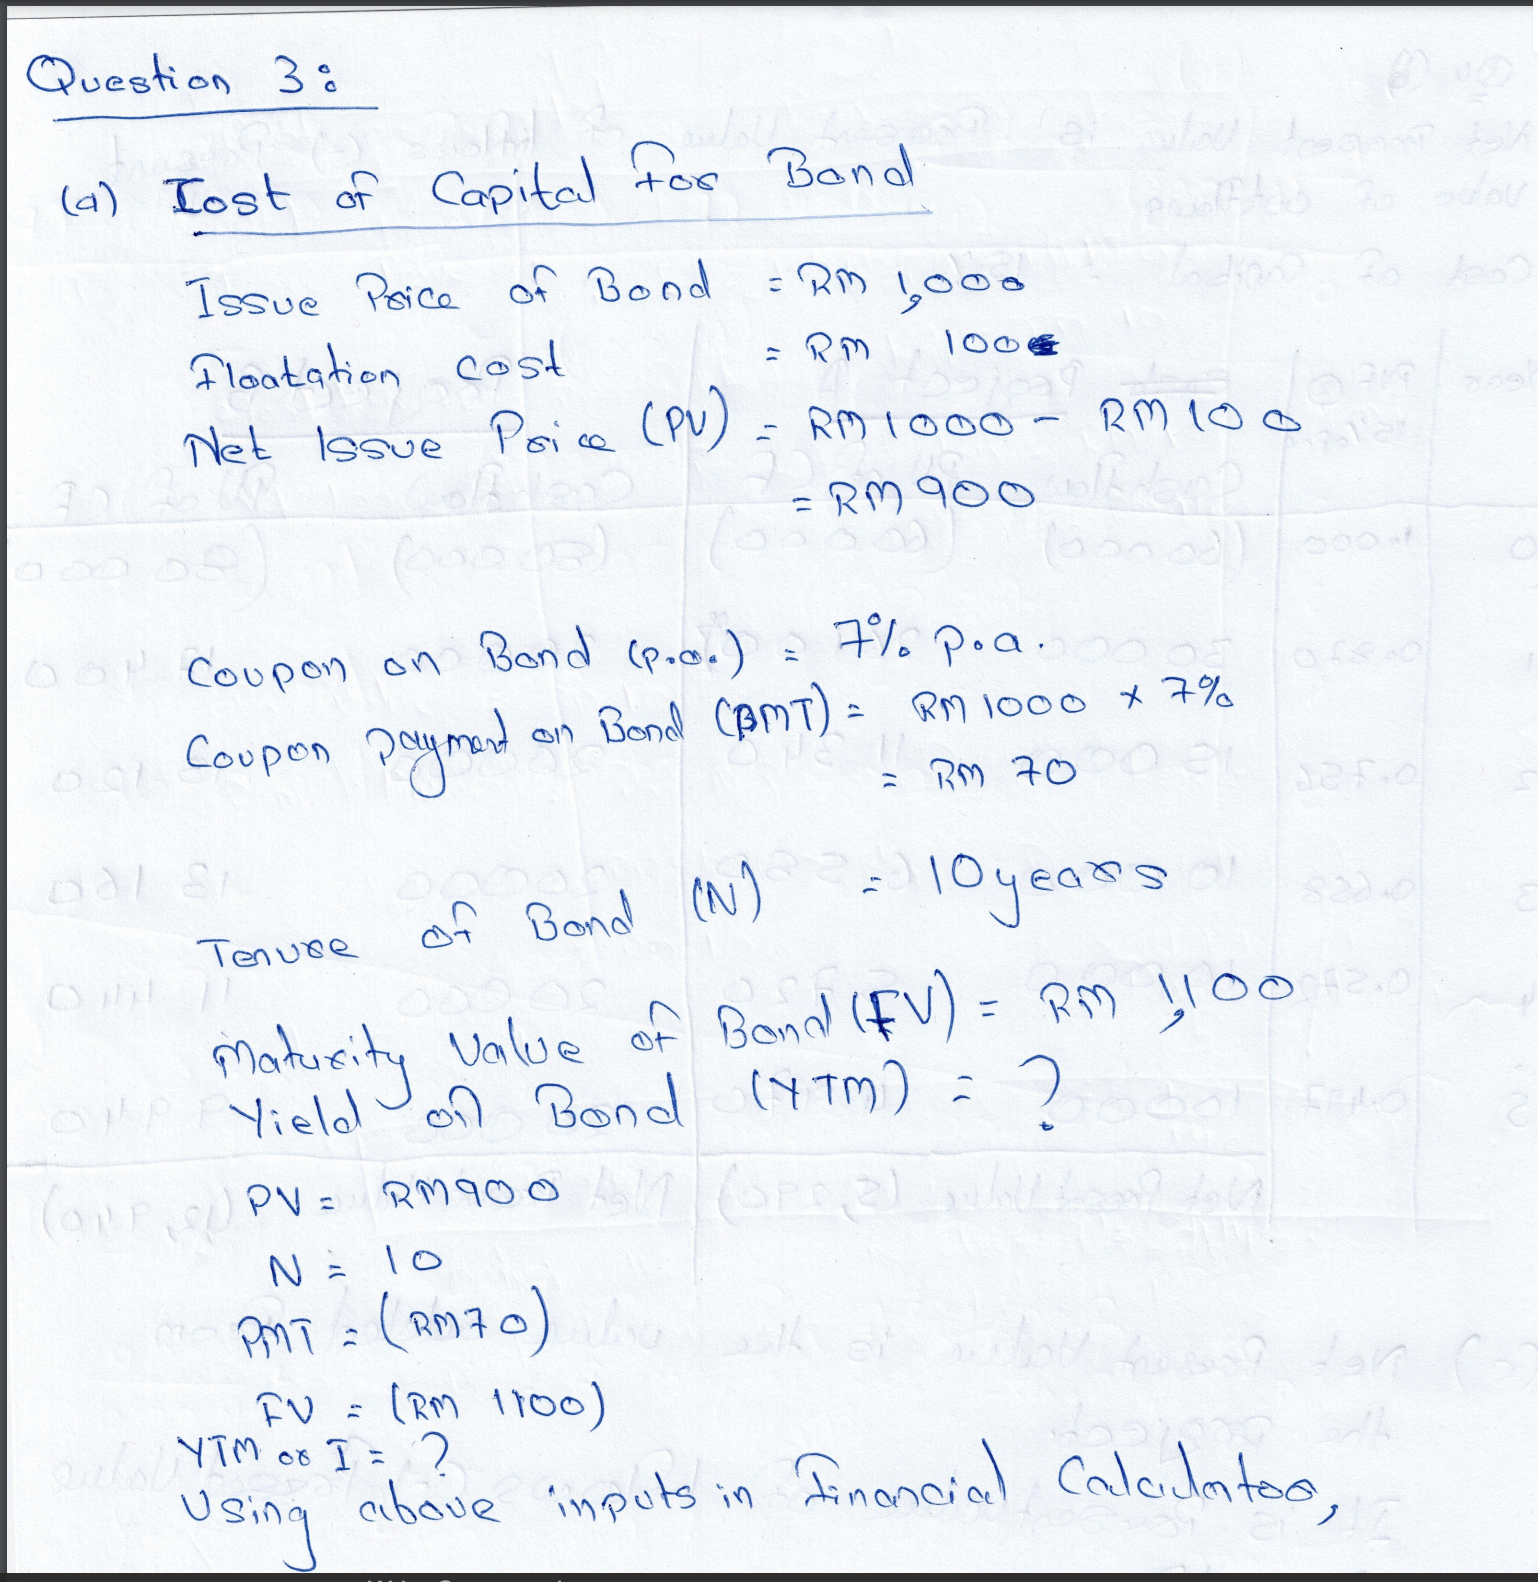 Question 3:
(a) Cost of Capital for Bond
Issue Price of Bond = RM 1,000
Floatation cost = RM 100
Net Issue Price (PV) = RM 1000 - RM 100
= RM 900
Coupon on Bond (p.a.) = 7% p.a.
Coupon payment on Bond (PMT) = RM 1000 x 7%
= RM 70
Tenure of Bond (N) = 10 years
Maturity Value of Bond (FV) = RM 1,100
Yield on Bond (YTM) = ?
PV = RM 900
N = 10
PMT = (RM 70)
FV = (RM 1100)
YTM or I = ?
Using above inputs in Financial Calculator,